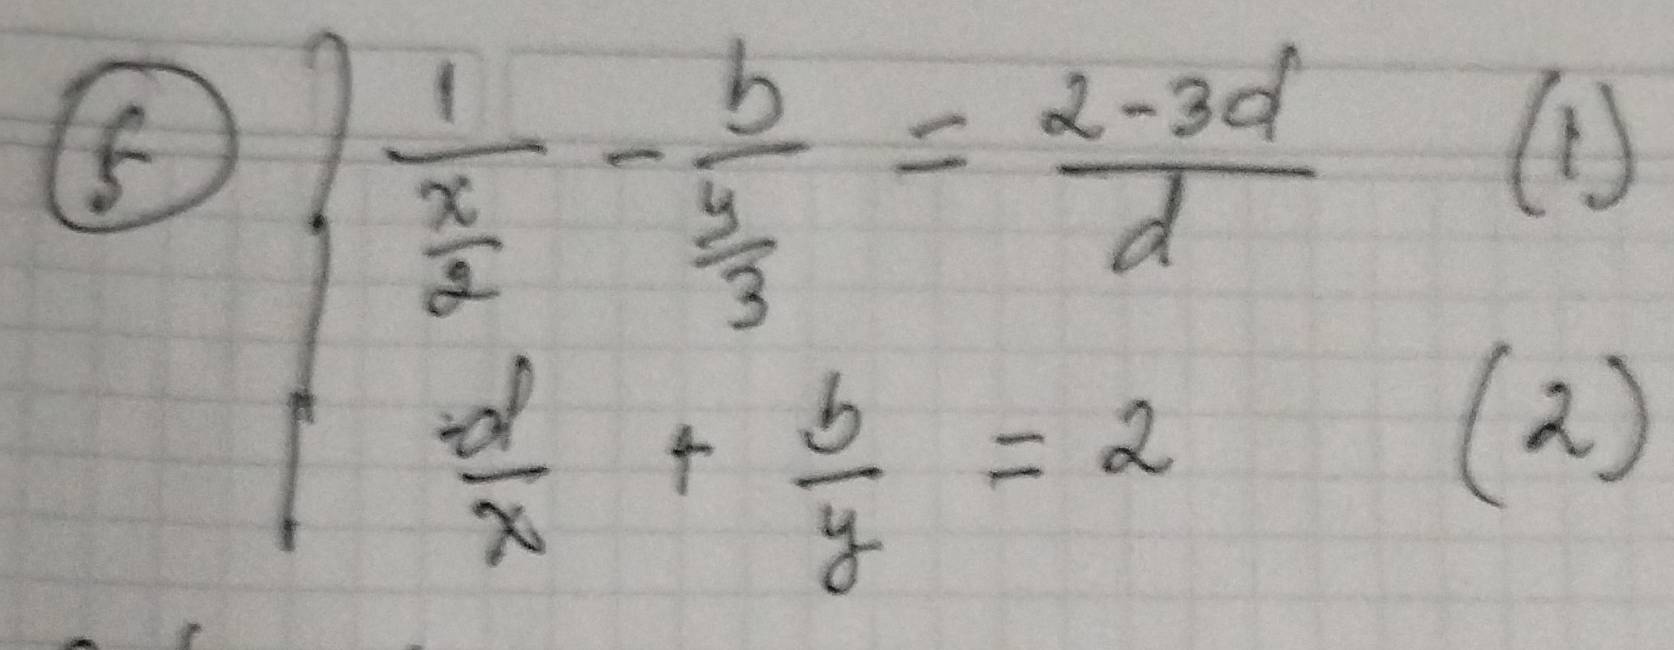 ⑤ { 1/(x/2) - b/(y/3) = (2-3d)/d (1)
-d/x + b/y = 2 (2)